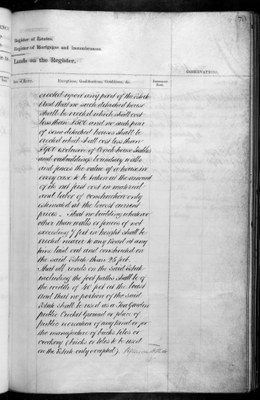 Register of Estates.
Register of Mortgages and Incumbrances.
Lands on the Register.
70
OBSERVATIONS.
Exceptions, Qualifications, Conditions, &c.
erected upon any part of the Estate
And that no such detached house
shall be erected which shall cost
less than £500 and no such pair
of semi detached houses shall be
erected which shall cost less than
£900 exclusive of Coach house Stables
and outbuildings boundary walls
and fences the value of a house in
every case to be taken at the amount
of its net first cost in material
and labor of construction only
estimated at the lowest current
prices. That no building whatever
other than walls or fences of not
exceeding 7 feet in height shall be
erected nearer to any Road at any
time laid out and constructed on
the said Estate than 25 feet.
That all roads on the said Estate
including the foot paths shall be of
the width of 40 feet at the least
And that no portion of the said
Estate shall be used as a Tea Gardens
public Cricket Ground or place of
public recreation of any kind or for
the manufacture of bricks tiles or
crockery (bricks or tiles to be used
on the Estate only excepted)